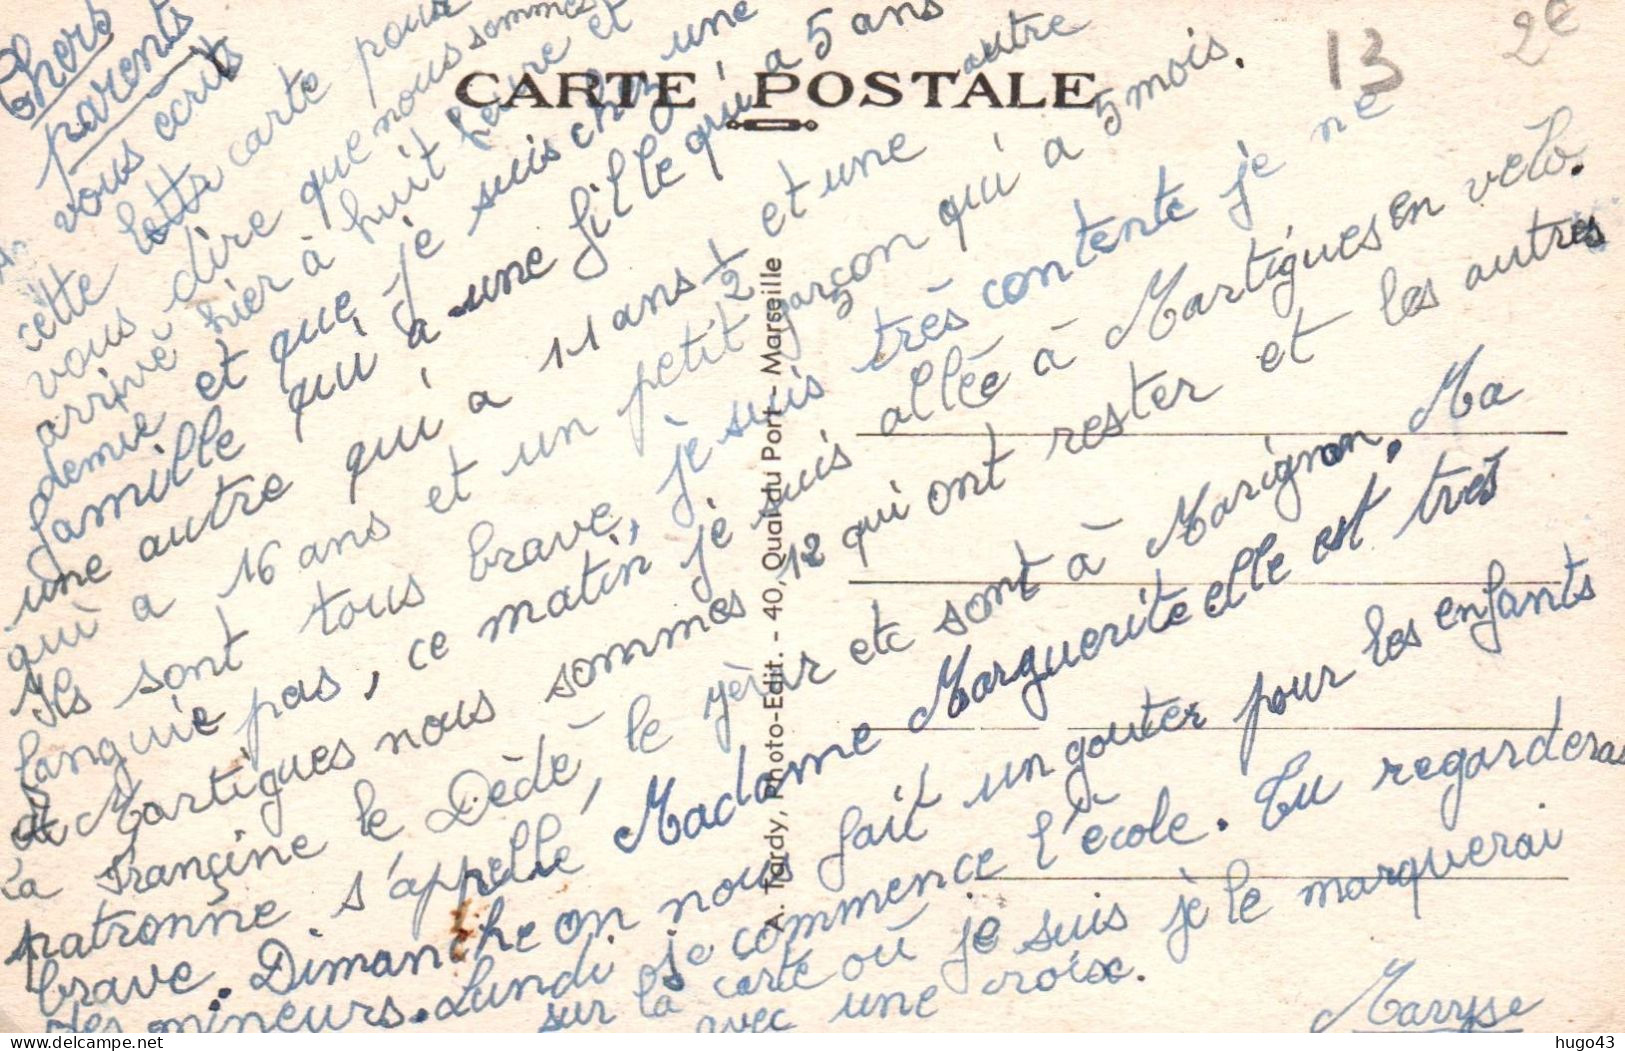 CARTE POSTALE
13
2€
Chers
parents
vous écrits
cette lettr carte pour
vous dire que nous sommes
arrivé hier à huit heure et
demie et que je suis chez une
famille qui a une fille qui a 5 ans
une autre qui a 11 ans 1/2 et une autre
qui a 16 ans et un petit garçon qui a 5 mois.
Ils sont tous brave, je suis très contente je ne
languie pas, ce matin je suis allée à Martigues en velo.
a Martigues nous sommes 12 qui ont rester et les autres
La Françine le Dèdè, le yèyur etc sont à Marignan. Ma
patronne s'appelle Madame Marguerite elle est très
brave. Dimanche on nous fait un gouter pour les enfants
des mineurs. Lundi je commence l'école. Tu regarderas
sur la carte où je suis je le marquerai
avec une croix.
Maryse
A. Tardy, Photo-Edit. - 40, Quai du Port - Marseille
hugo43